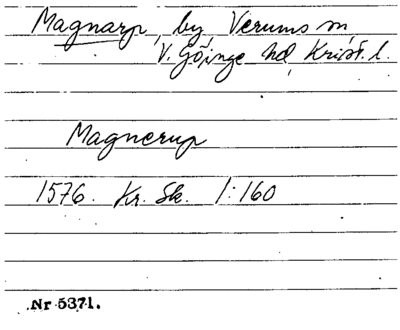 Magnarp, by, Verums sn,
V. Göinge hd, Krist. l.
Magnerup
1576. Kr. Sk. 1:160
Nr 5371.